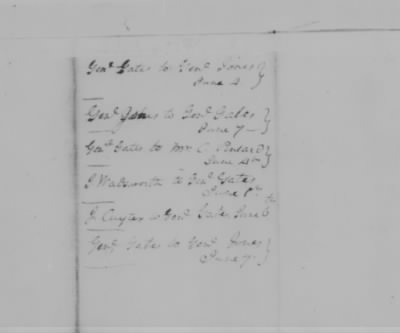 Genl. Gates to Genl. Jones }
June 4 }
Genl. Jones to Genl. Gates }
June 7 }
Genl. Gates to Mr. C. }
June 4th }
J. Wadsworth to Genl. Gates
June
J. Cuyler to Genl. Gates, June 6
Genl. Gates to Genl. Jones }
June 7 }